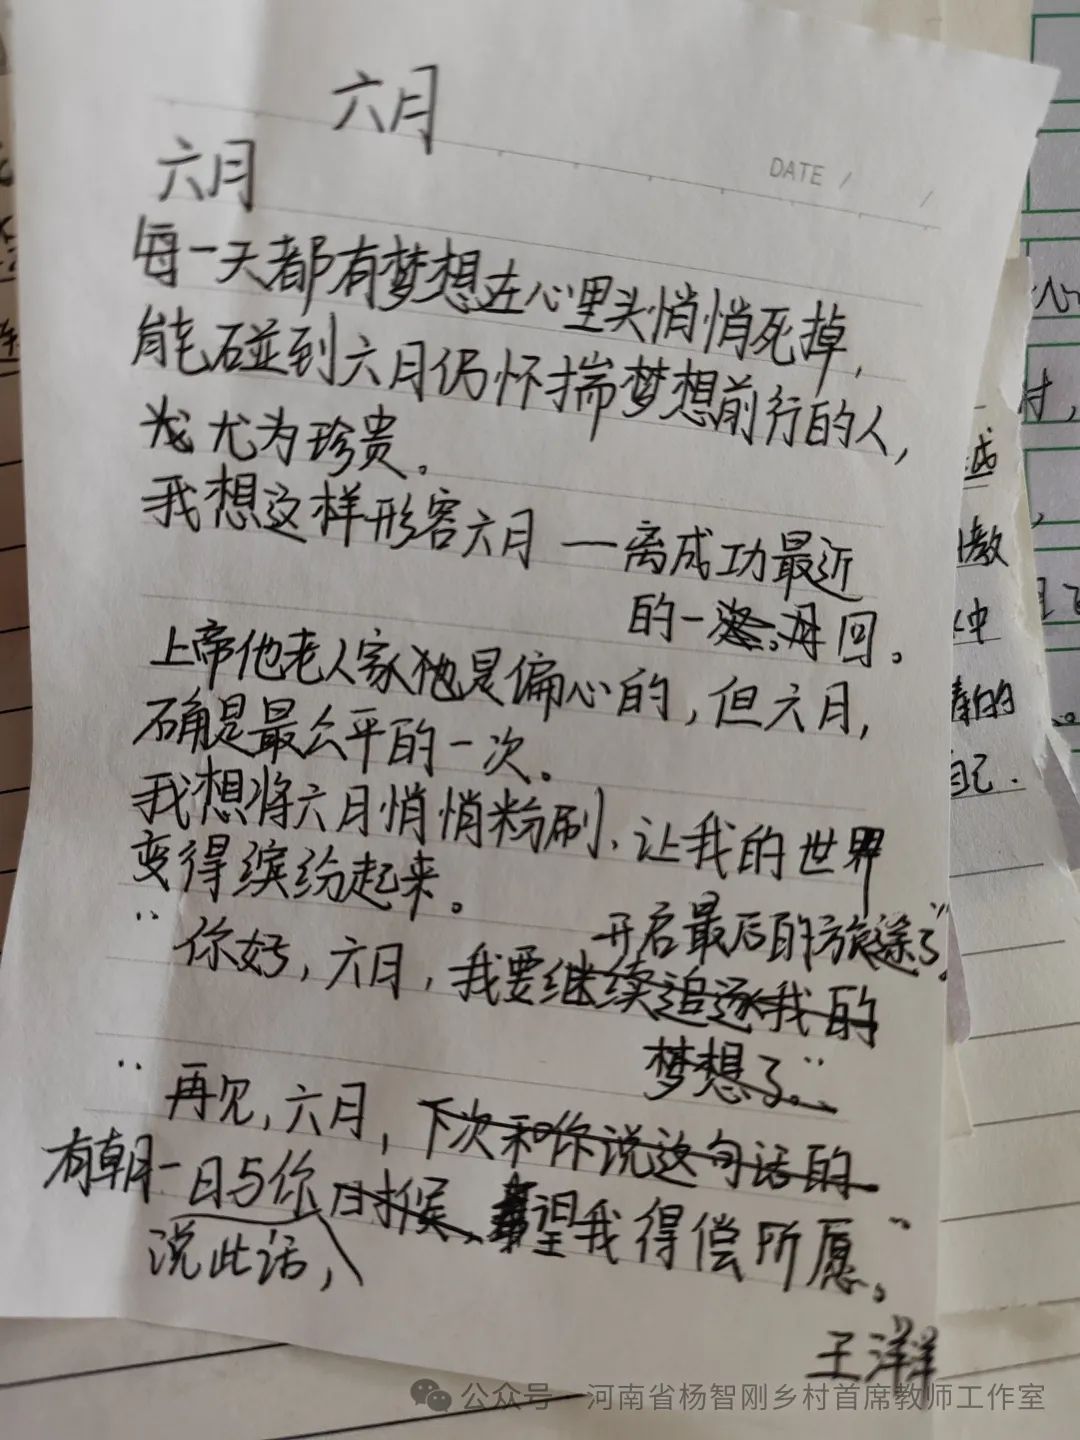 六月
DATE / /
六月
每一天都有梦想在心里头悄悄死掉，
能碰到六月仍怀揣梦想前行的人，
尤为珍贵。
我想这样形容六月 —离成功最近
的一回。
上帝他老人家他是偏心的，但六月，
确是最公平的一次。
我想将六月悄悄粉刷，让我的世界
变得缤纷起来。
开启最后的旅途了”
“你好，六月，我要继续追逐我的
梦想了。”
“再见，六月，下次和你说这句话的
有朝一日与你时候，望我得偿所愿。”
说此话，
王洋洋
公众号 · 河南省杨智刚乡村首席教师工作室
时，
越
教
中
的
自己.